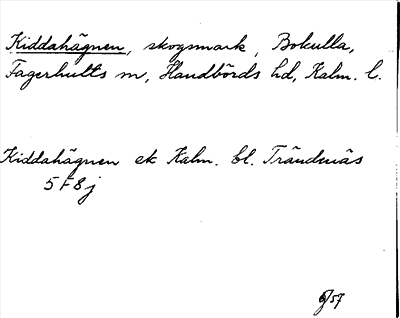 Kiddahägnen, skogsmark, Bokulla,
Fagerhults sn, Handbörds hd, Kalm. l.
Kiddahägnen ek Kalm. bl. Trändenäs
5 F 8 j
/57